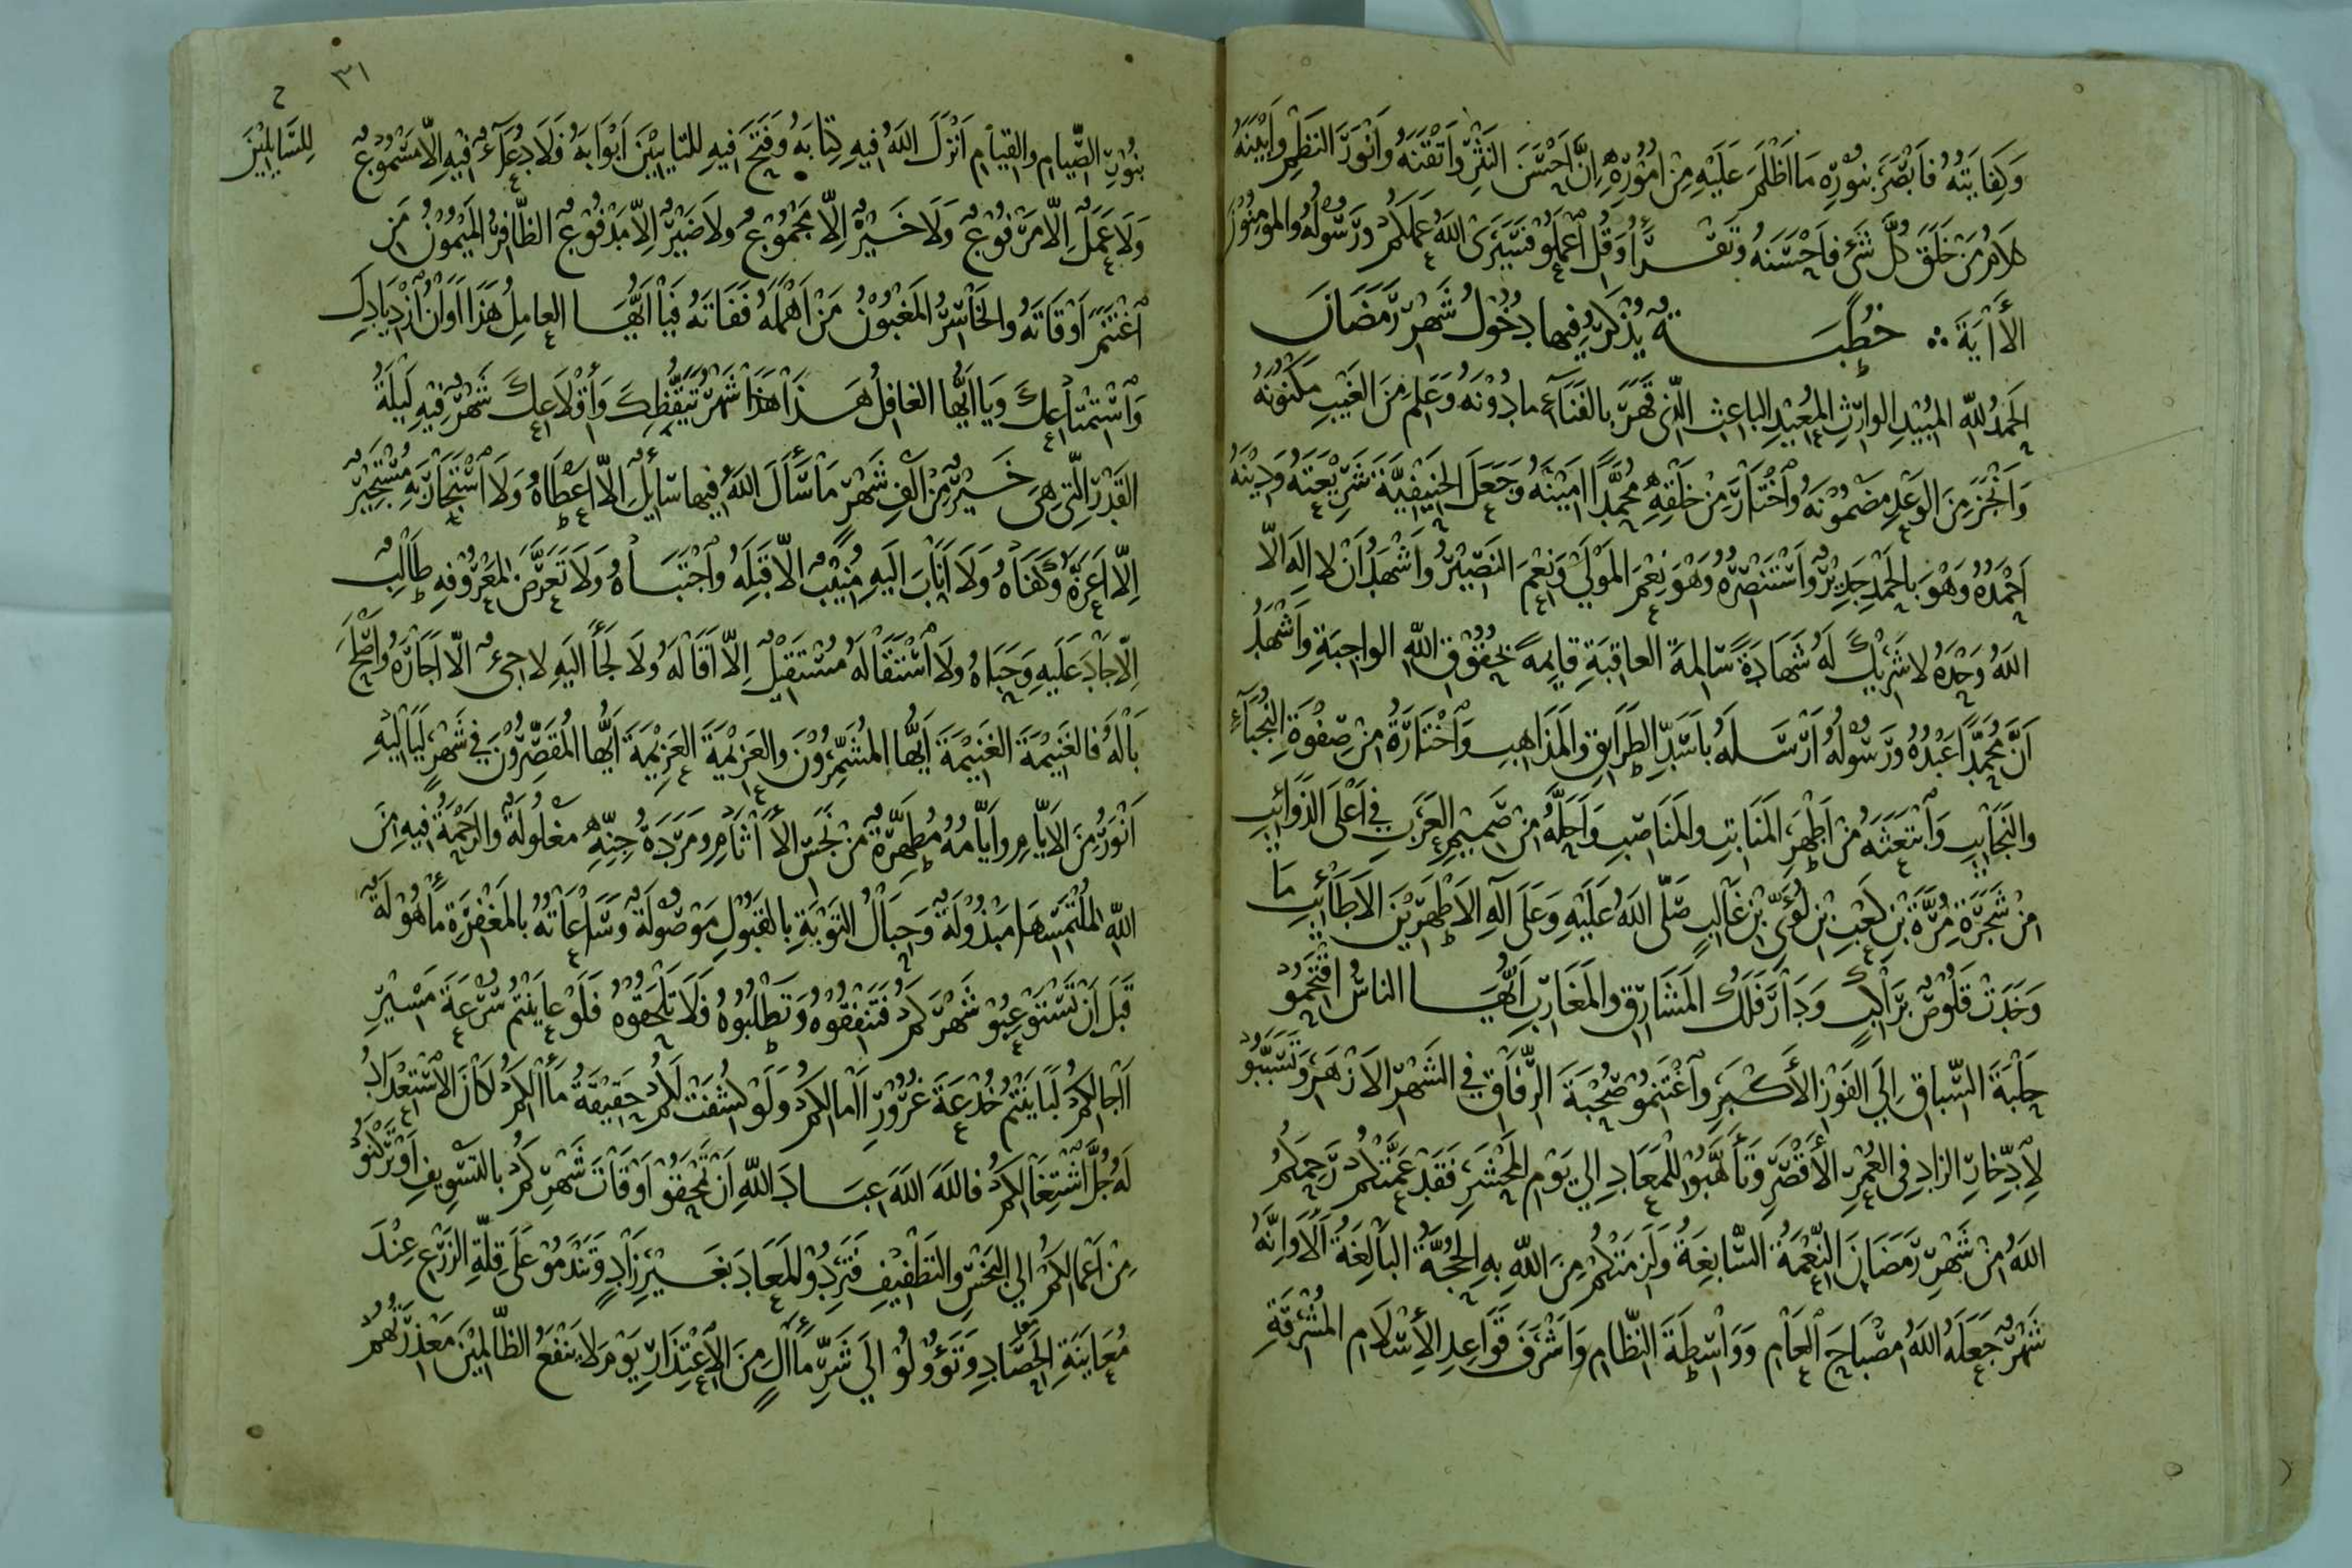 وَكِفَايَتِهُ فَابْصَرَ بنُورِه مَا اَظْلَمَ عَلَيْهِ مِنْ اُمُوْرِهِ اِنَّ اَحْسَنَ النَثْرِ وَاَتْقَنَهُ وَاَنْوَرَ النَظمِ وَاَبْيَنَهُ
كلامُ مَنْ خَلَقَ كُلَّ شَيْءٍ فاَحْسَنَهُ وتَقْرَأُ وَقُلِ اعْمَلُوْ فسَيَرَى اللهُ عَمَلَكُمْ ورَسُولُهُ والمومِنُوْنَ
الأاٰيَةَ ∴ خطْبَةٌ يُذْكَرُ فِيها دُخُولُ شَهْرِ رَمَضَانَ
الحَمْدُ للهِ المُبْيدِ الوارِثِ المُعِيْدِ الباعِثِ الَّذِى قَهَرَ بالفَنَآءِ مادُوْنَهُ وَعَلِمَ مِنَ الغَيْبِ مَكنُونَهُ
وَاَنْجَزَ مِنَ الوَعْدِ مضمُوْنَهُ وَاخْتَارَ مِنْ خَلْقِهِ مُحَمَّدًا امِيْنَهُ وَجَعَلَ الحَنِيْفِيَّةَ شَرِيْعَتَهُ وَدِيْنَهُ
اَحْمَدُهُ وَهْوَ بِالحَمْدِ جَدِيْرٌ وَاَسْتَنْصِرُهُ وَهْوَ نِعْمَ المَوْلَى وَنِعْمَ النَصِيْرُ وَاَشْهَدُ اَنْ لا اِلَهَ الّا
اللهُ وَحْدَهُ لا شَرِيْكَ لَهُ شَهَادَةً سَالِمَةَ العاقِبَةِ قايِمةً بحُقُوْقِ اللهِ الواجِبَةِ وَاَشْهَدُ
اَنَّ مُحَمَّدًا عَبْدُهُ ورَسُوْلُهُ اَرْسَلهُ باَسَدِّ الطَرايِقِ والمَذَاهِبِ وَاخْتَارَهُ مِنْ صِفْوَةِ النُجَبَآءِ
والنَجَايِبِ وَابْتَعَثَهُ مِنْ اَطْهَرِ المَنَابِتِ والمَنَاصِبِ وَاَحَلَّهُ مِنْ صَمِيْمِ العَرَبِ في اَعْلَى الذَوَائِبِ
مِنْ شَجَرَةِ مُرَّةَ بْنِ كَعْبِ بْنِ لُؤَيِّ بْنِ غالِبٍ صَلَّى اللهُ عَلَيْهِ وَعَلَى آلِهِ الاَطْهَرِيْنَ الاَطَائِبِ مَا
وَخَدَتْ قَلُوْصٌ بِرَاكِبٍ وَدَارَ فَلَكُ المَشَارِقِ والمَغَارِبِ اَيُّهَا الناسُ اقْتَحِمُو
حَلْبَةَ السِّبَاقِ اِلَى الفَوْزِ الأَكْبَرِ وَاغْتَنِمُوْ صُحْبَةَ الرِّفَاقِ في الشَهْرِ الاَزْهَرِ وَتَسَبَّبُو
لِاِدِّخَارِ الزادِ فِي العُمْرِ الأَقْصَرِ وَتَأَهَّبُوْ لِلْمَعَادِ الي يَوْمِ المَحْشَرِ فَقَدْ عَمَّتْكُمْ رَحِمَكُمُ
اللهُ مِنْ شَهْرِ رَمَضَانَ النِّعْمَةُ السَّابِغَةُ وَلَزِمَتْكُمْ مِنَ اللهِ بِهِ الحُجَّةُ البالِغَةُ اَلَا وَاِنَّهُ
شَهْرٌ جَعَلَهُ اللهُ مصْبَاحَ العَامِ وَوَاسِطَةَ النِّظَامِ وَاَشْرَفَ قَوَاعِدِ الأِسْلَامِ المُشْرِقَةِ
٣١
بنُوْرِ الصِّيَامِ والقيَامِ اَنْزَلَ اللهُ فِيهِ كِتَابَهُ وَفَتَحَ فِيهِ للتايِبِيْنَ اَبْوَابَهُ فَلَا دُعَآءٌ فِيْهِ اِلّا مَسْمُوْعٌ
للسَّايِلِيْنَ
وَلَا عَمَلٌ اِلّا مَرْفُوْعٌ وَلَا خَيْرٌ اِلّا مَجْمُوْعٌ ولاَ ضَيْرٌ اِلاّ مَدْفُوْعٌ الظَّافِرُ المَيْمُوْنُ مَنِ
اغْتَنَمَ اَوْقَاتَهُ والخَاسِرُ المَغْبُوْنُ مَنْ اَهْمَلَهُ فَفَاتَهُ فَيَا اَيُّهَا العامِلُ هَذَا اَوَانُ ازْدِيَادِكَ
وَاسْتِمْتَاعِكَ وَيَا اَيُّها الغافِلُ هَذَا هذا شَهْرُ تَيَقُّظِكَ وَاِقْلَاعِكَ شَهْرٌ فِيْهِ لَيْلَةُ
القَدْرِ الَّتِي هِيَ خَيْرٌ مِنْ اَلْفِ شَهْرٍ مَا سَأَلَ اللهَ فِيها سَائِلٌ اِلّا اَعْطَاهُ وَلَا اسْتَجَارَ بِهِ مُسْتَجِيْرٌ
اِلّا اَعَزَّهُ وَكَفَاهُ وَلَا اَنَابَ اِلَيهِ مُنِيْبٌ اِلّا قَبِلَهُ وَاجْتَبَاهُ وَلَا تَعَرَّضَ لمَعْرُوْفِهِ طَالِبٌ
اِلّا جَادَ عَلَيهِ وَحَبَاهُ ولَا اسْتَقَالَهُ مُسْتَقِيْلٌ اِلّا اَقَالَهُ وَلَا لَجَأَ اليَهِ لاجِئٌ الّا اَجَارَهُ وَاَصْلَحَ
بَالَهُ فَالغَنِيْمَةَ الغَنِيْمَةَ اَيُّها المُشَمِّرُوْنَ والعَزِيْمَةَ العَزِيْمَةَ اَيُّها المُقَصِّرُوْنَ فِي شَهْرٍ لَيَالِيْهِ
اَنْوَرُ مِنَ الاَيَّامِ وَاَيَّامُهُ مُطَهِّرَةٌ مِنْ نَجَسِ الأَاثَامِ ومَرَدَةُ جِنِّهِ مغلُولَةٌ والرَحْمَةُ فِيْهِ مِنَ
اللهِ لمُلْتَمِسِهَا مَبْذُوْلَةٌ وَحِبَالُ التَوْبَةِ بالقَبُوْلِ مَوْصُوْلَةٌ وَسَاعَاتُهُ بالمَغْفِرَةِ مَاْهُوْلَةٌ
قَبْلَ اَنْ تَسْتَوْعِبُوْ شَهْرَكُمْ فَتَنْفِقُوْهُ وَتَطْلُبُوْهُ فلَا تَلْحَقُوْهُ فَلَوْ عايَنْتُمْ سُرْعَةَ مَسِيْرِ
اٰجالِكُمْ لَبَايَنْتُمْ خُدْعَةَ غُرُوْرِ اٰمالِكُمْ وَلَوْ كُشِفَتْ لَكُمْ حَقِيْقَةُ مَاٰلِكُمْ لَكَانَ الاِسْتِعْدَادُ
لَهُ جُلَّ اشْتِغَالِكُمْ فاللهَ اللهَ عِبَادَ اللهِ اَنْ تَمْحَقُوْ اَوْقَاتَ شَهْرِكُمْ بالتَسْوِيفِ اَوْ تَرْكَنُوْ
مِنْ اَعْمالِكُمْ الي البَخْسِ والتَطْفِيْفِ فَتَرِدُوْ المَعَادَ بغَيْرِ زَادٍ وَتَنْدَمُوْ عَلَى قِلَّةِ الزَرْعِ عِنْدَ
مُعَايَنَةِ الحَصَادِ وَتَؤُوْلُوْ الي شَرِّ مَاٰلٍ مِنَ الاِعْتِذَارِ يَوْمَ لا يَنْفَعُ الظّالِمِيْنَ مَعْذِرَتُهُمْ